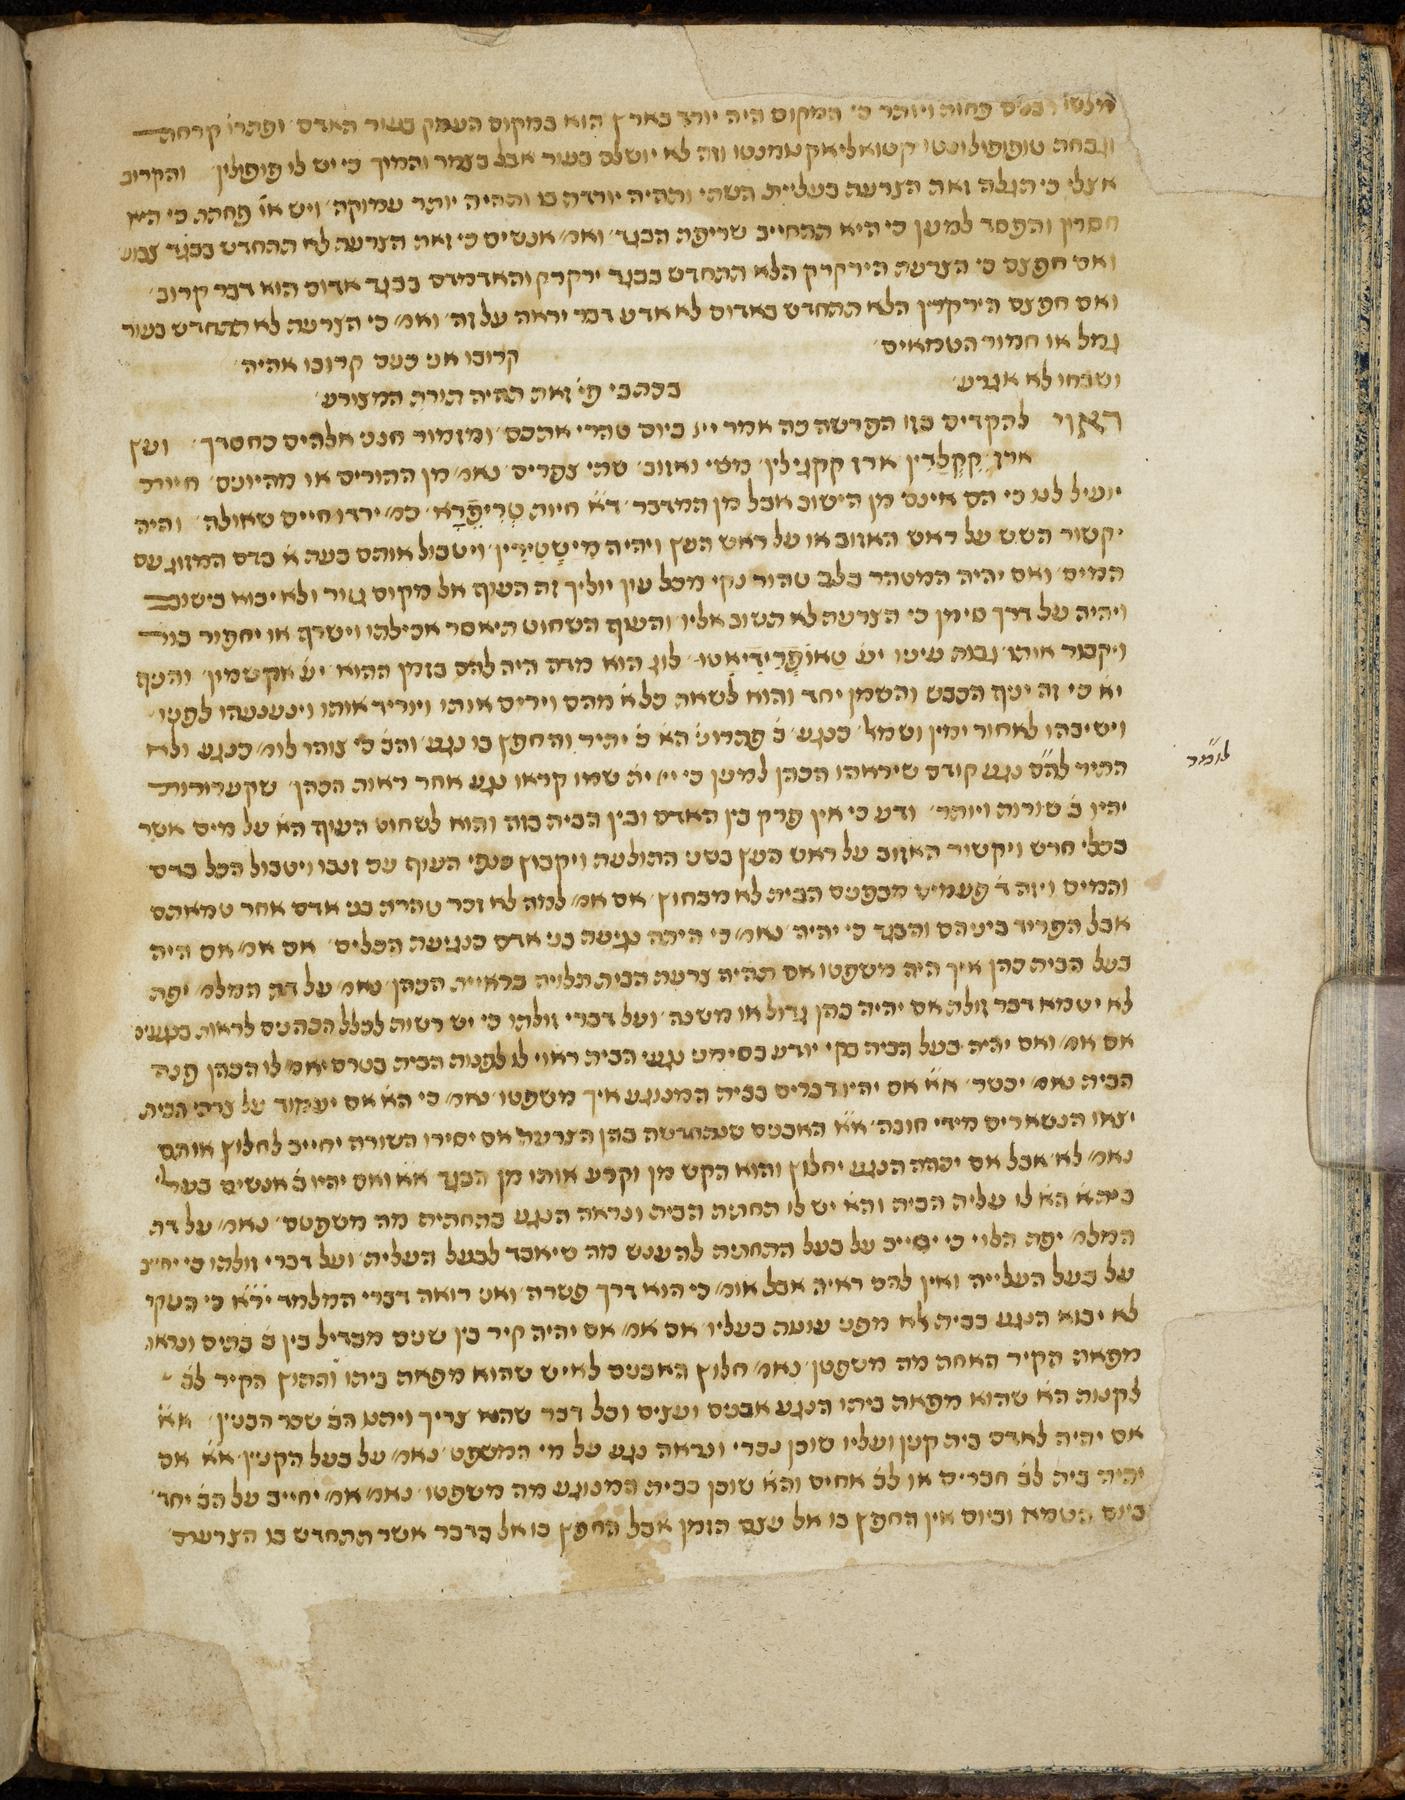 פחות ויותר כי המקום היה יורד בארץ הוא במקום העמק בעור האדם ופתרו׳ קרחת
וזה לא יושלם בעור אבל בצמר והמיך כי יש לו והקרוב
אצלי כי תגלה זאת הצרעת בעליית השתי ותהיה יורדה בו ותהיה יותר עמוקה ויש או׳ פחתת כי היא
חסרון והפסד למען כי היא תתחייב שריפת הבגד ואמ׳ אנשים כי זאת הצרעת לא תתחדש בבגד צבוע
ואם חפצם כי הצרעת הירקרק הלא תתחדש בבגד ירקרק והאדמדם בבגד אדום הוא דבר קרוב
ואם חפצם הירקרק הלא תתחדש באדום לא אדע דבר יראה על זה ואמ׳ כי הצרעת לא תתחדש בעור
גמל או חמור הטמאים׳
קרובו אני כעם קרובו אהיה׳
ושבחו לא אגרע׳
בכתבי פי׳ זאת תהיה תורת המצורע׳
ראוי להקדים בזו הפרשה כה אמר ייי ביום טהרי אתכם׳ ומזמור חנני אלהים כחסדך׳ ועץ
ארז ארז מטי ואזוב׳ שתי צפרים׳ נאמ׳ מן התורים או מהיונים׳ חיות
יועיל לנו כי הם אינם מן הישוב אבל מן המדבר׳ ד״א חיות כמ׳ ירדו חיים שאולה׳ והיה
יקשור השש על ראש האזוב או על ראש העץ ויהיה ויטבול אותם בעת א׳ בדם המזוג עם
המים׳ ואם יהיה המטהר בלב טהור נקי מכל עון יוליך זה העוף אל מקום גזור ולא יבוא בישוב
ויהיה על דרך סימן כי הצרעת לא תשוב אליו והעוף השחוט תיאסר אכילתו וישרף או יחפור בור
ויקבור אותו׳ גבות עיניו יע׳ לוג הוא מדה היה להם בזמן ההוא יע׳ והניף
יא׳ כי זה יניף הכבש והשמן יחד והוא לשאת כל א׳ מהם וירים אותו ויוריד אותו וינענעהו לפניו
וישיבהו לאחור ימין ושמאל׳ כנגע׳ ב׳ פתרוני׳ הא׳ כ׳ יתיר והחפץ בו נגע׳ והב׳ כי צוהו לומ׳ כנגע ולא
התיר להם נגע קודם שיראהו הכהן למען כי ייי ית׳ שמו קראו נגע אחר ראות הכהן׳ שקערורות
לומר
יהיו ב׳ שורות ויותר׳ ודע כי אין פרק בין האדם ובין הבית בזה והוא לשחוט העוף הא׳ על מים אשר
בכלי חרש ויקשור האזוב על ראש העץ בשני התולעת ויקבוץ כנפי העוף עם זנבו ויטבול הכל בדם
והמים ויזה ז׳ פעמים מבפנים הבית לא מבחוץ׳ אם אמ׳ למה לא זכר טהרת בני אדם אחר טמאתם
אבל הפריד ביניהם והבגד כי יהיה׳ נאמ׳ כי היתה נגיעת בני אדם כנגיעת הכלים׳ אם אמ׳ אם היה
בעל הבית כהן איך היה משפטו אם תהיה צרעת הבית תלויה בראיית הכהן׳ נאמ׳ על דת המלמ׳ יפת
לא יטמא דבר זולת אם יהיה כהן גדול או משנה׳ ועל דברי זולתו כי יש רשות לכלל הכהנים לראות בנגעים
אם אמ׳ ואם יהיה בעל הבית בקי יודע בסימני נגעי הבית ראוי לו לפנות הבית בטרם יאמ׳ לו הכהן פנה
הבית נאמ׳ יכשר׳ א״א אם יהיו דברים בבית המנוגע איך משפטו׳ נאמ׳ כי הא׳ אם יעמוד על צרכי הבית
יצאו הנשארים מידי חובה׳ א״א האבנים שנתחדשה בהן הצרעת אם יסירו השורה יחייב לחלוץ אותם
נאמ׳ לא׳ אבל אם יכהה הנגע יחלוץ והוא הקש מן וקרע אותו מן הבגד א״א ואם יהיו ב׳ אנשים בעלי
בית א׳ הא׳ לו עליית הבית והא׳ יש לו תחתית הבית ונראה הנגע בתחתית מה משפטם׳ נאמ׳ על דת
המלמ׳ יפת הלוי כי יחייב על בעל התחתית להענש מה שיאבד לבעל העלית׳ ועל דברי זולתו כי יחייב
על בעל העלייה ואין להם ראיה אבל אומ׳ כי הוא דרך פשרה׳ ואני רואה דברי המלמד יר״א כי העקר
לא יבוא הנגע בבית לא מפני עונות בעליו׳ אם אמ׳ אם יהיה קיר בין שנים מבדיל בין ב׳ בתים ונראה
מפאת הקיר האחת מה משפטן׳ נאמ׳ חלוץ האבנים לאיש שהוא מפאת ביתו ונתוץ הקיר לב׳
לקנות הא׳ שהוא מפאת ביתו הנגע אבנים ועצים וכל דבר שהוא צריך ויתנו הב׳ שכר הבנין׳ א״א
אם יהיה לאדם בית קטן ועליו שוכן נכרי ונראה נגע על מי המשפט׳ נאמ׳ על בעל הקנין׳ א״א אם
יהיה בית לב׳ חברים או לב׳ אחים והא׳ שוכן בבית המנוגע מה משפטו׳ נאמ׳ אמ׳ יחייב על הב׳ יחד׳
ביום הטמא וביום אין החפץ בו אל עצם הזמן אבל החפץ בו אל הדבר אשר תתחדש בו הצרעת